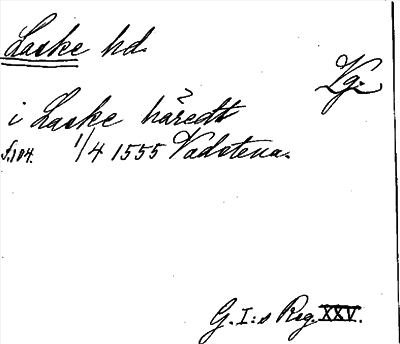 Laske hd.
Vg.
i Laske häredt
f. 104. 1/4 1555 Vadstena.
G. I:s Reg. XXV.